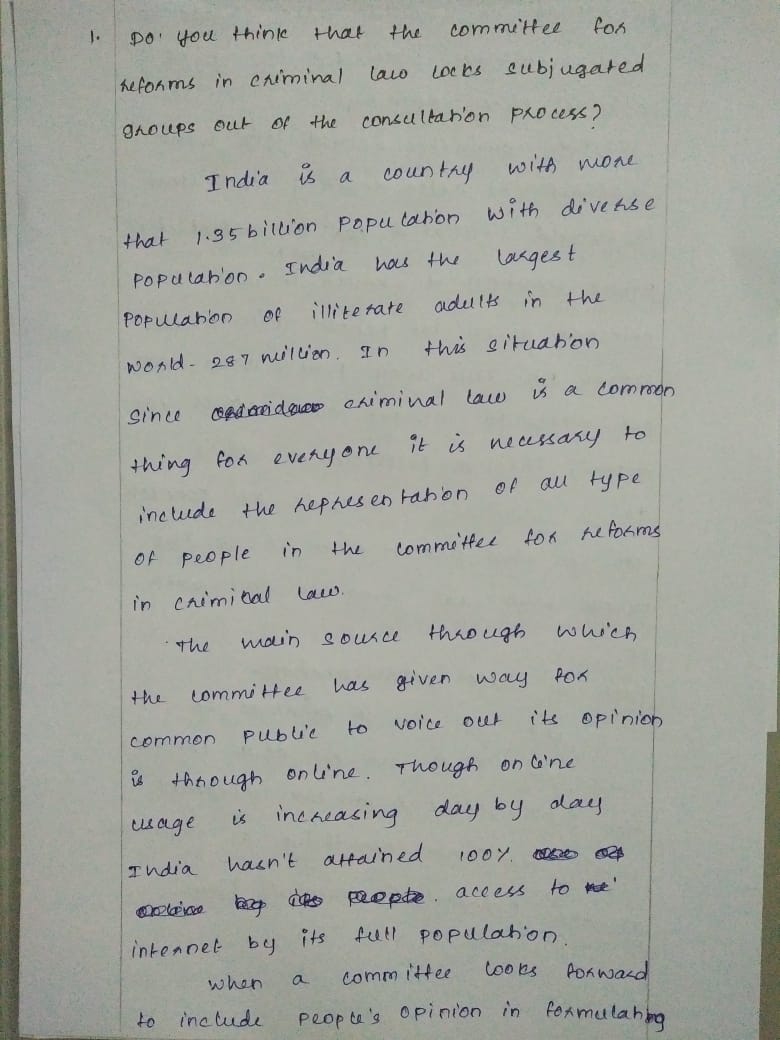 1. Do you think that the committee for
reforms in criminal law locks subjugated
groups out of the consultation process?
India is a country with more
that 1.35 billion population with diverse
population. India has the largest
population of illiterate adults in the
world - 287 million. In this situation
since criminal law is a common
thing for everyone it is necessary to
include the representation of all type
of people in the committee for reforms
in crimital law.
The main source through which
the committee has given way for
common public to voice out its opinion
is through online. Though online
usage is increasing day by day
India hasn't attained 100%
people. access to
internet by its full population.
When a committee looks forward
to include people's opinion in formulating